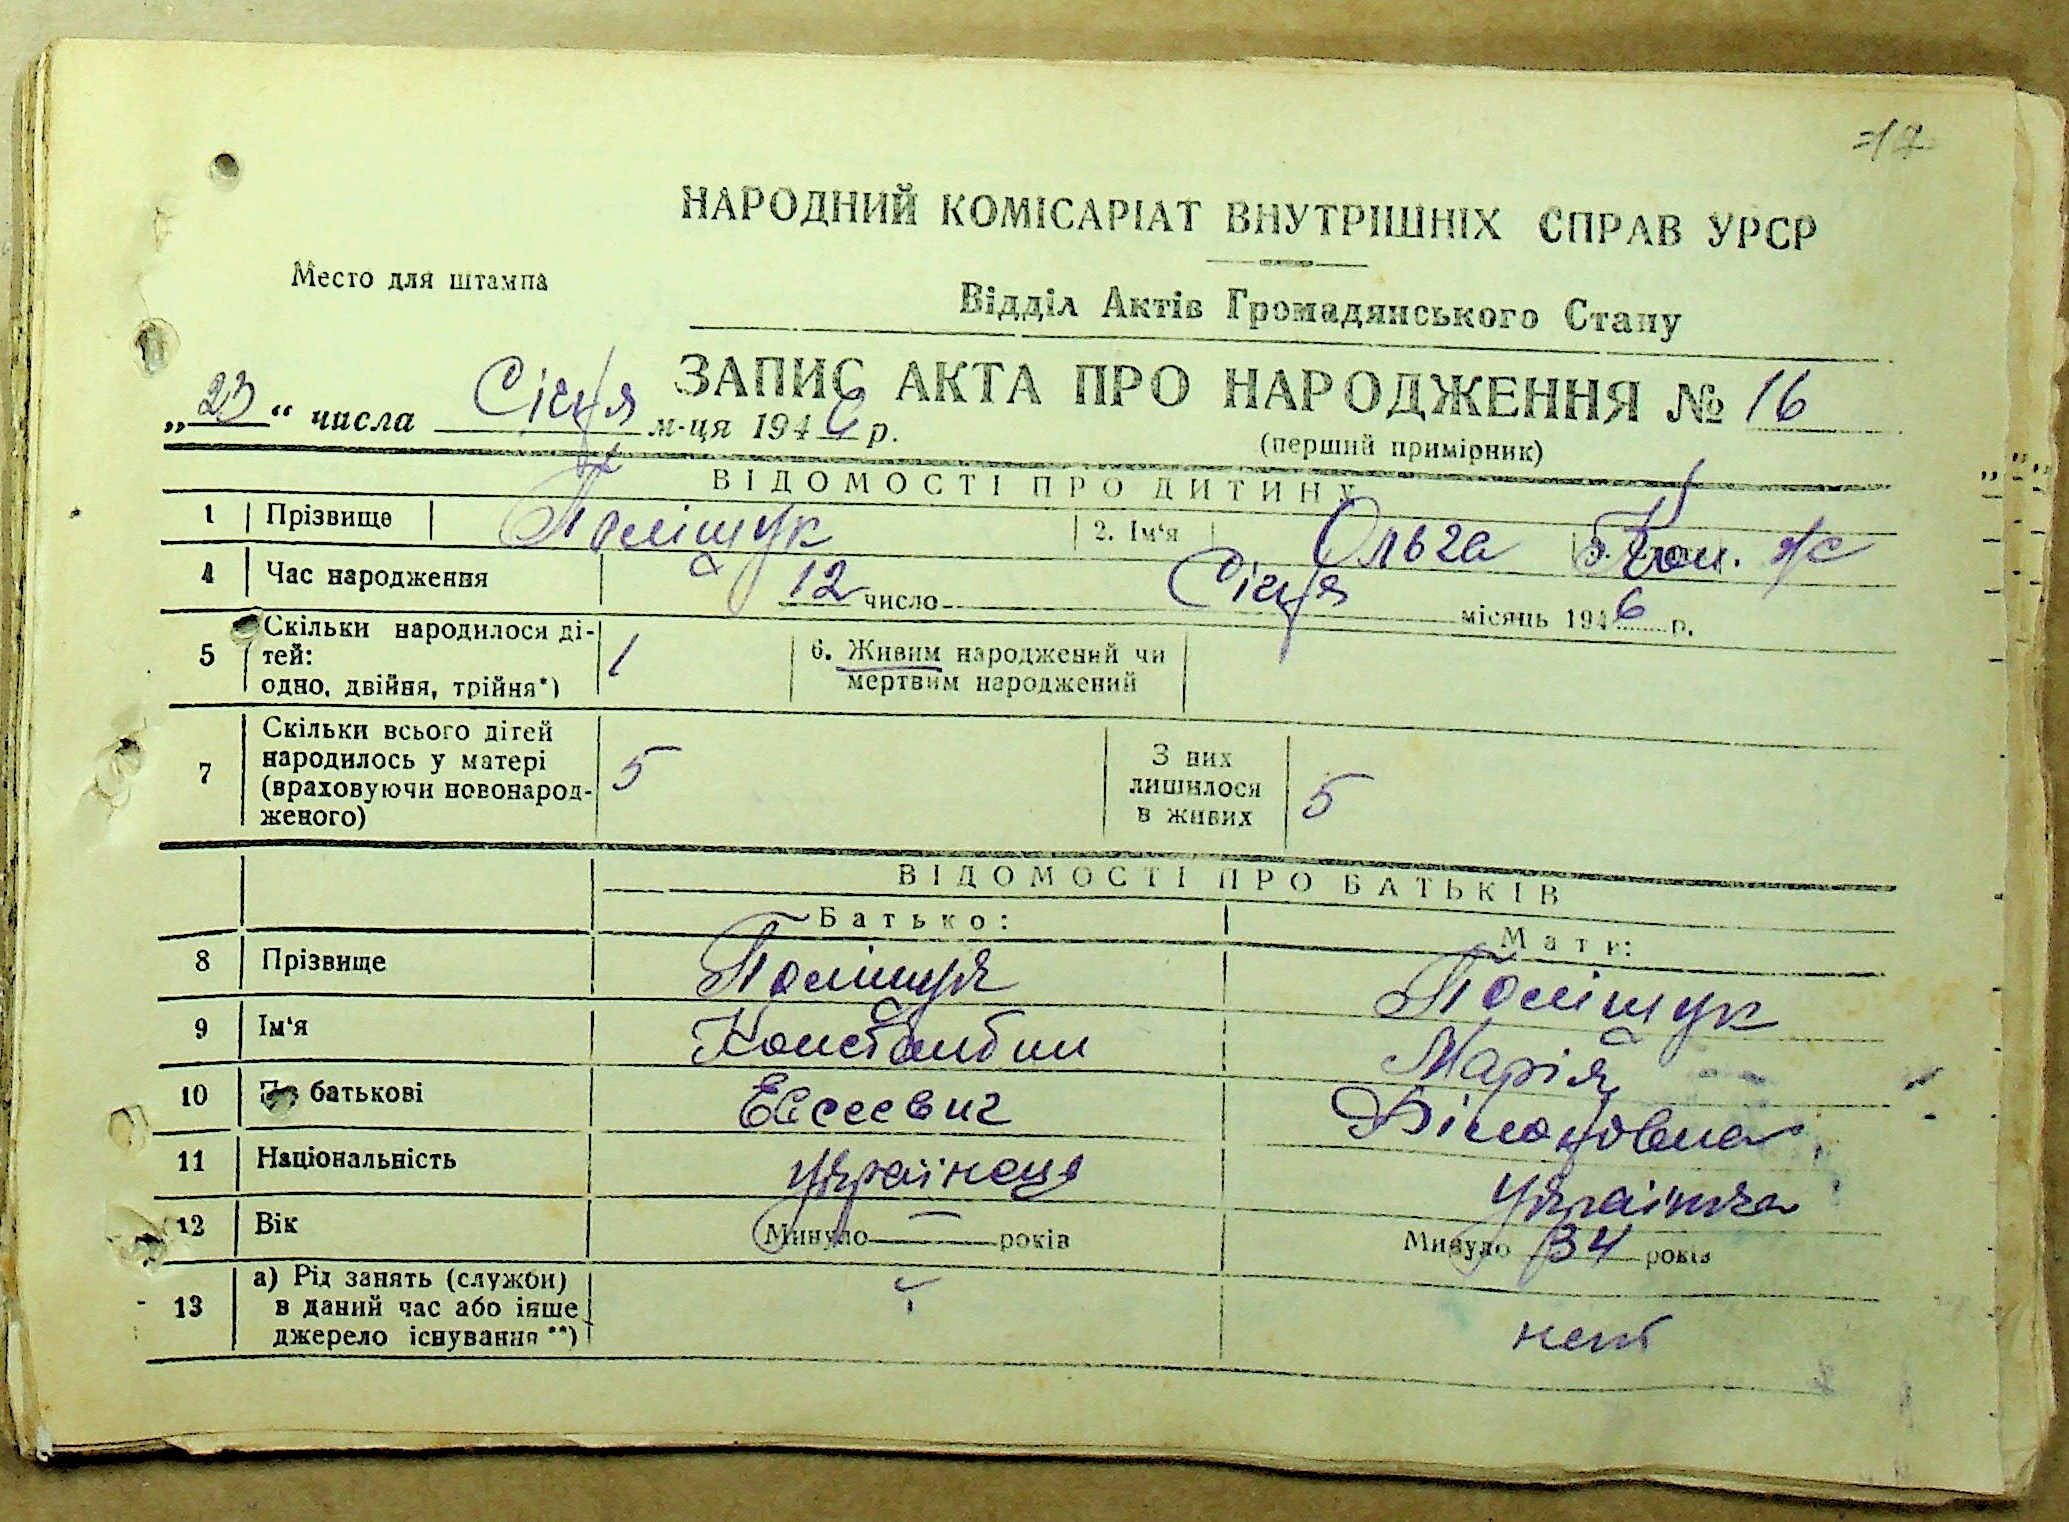 17
НАРОДНИЙ КОМІСАРІАТ ВНУТРІШНІХ СПРАВ УРСР
Место для штампа
Відділ Актів Громадянського Стану
ЗАПИС АКТА ПРО НАРОДЖЕННЯ № 16
„23“ числа Січня м-ця 1946 р.
(перший примірник)
ВІДОМОСТІ ПРО ДИТИНУ
1 Прізвище Поліщук 2. Ім'я Ольга 3. Кон. ж
4 Час народження 12 число Січня місяць 1946 р.
5 Скільки народилося ді-
тей:
одно, двійня, трійня*) 1
6. Живим народжений чи
мертвим народжений
7 Скільки всього дітей
народилось у матері
(враховуючи новонарод-
женого) 5
З них
лишилося
в живих 5
ВІДОМОСТІ ПРО БАТЬКІВ
Батько: Мати:
8 Прізвище Поліщук Поліщук
9 Ім'я Константин Марія
10 По батькові Евсеевич
11 Національність українець українка
12 Вік Минуло — років Минуло 34 років
13 а) Рід занять (служби)
в даний час або інше
джерело існування **) нет